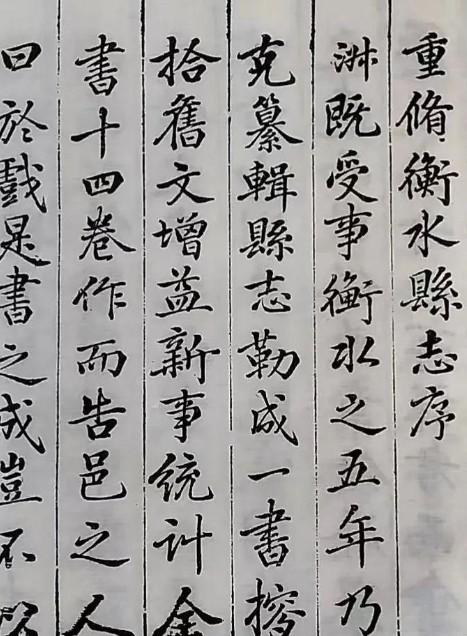 重脩衡水縣志序
淑既受事衡水之五年乃
克纂輯縣志勒成一書摉
拾舊文增益新事統計全
書十四卷作而告邑之人
曰於戲是書之成豈不